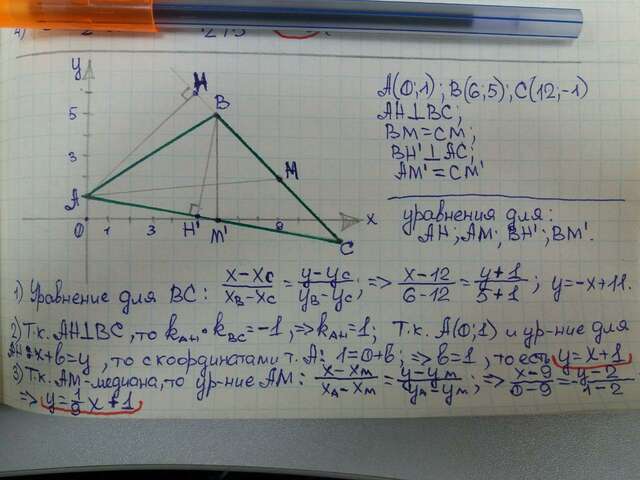 y
H
B
5
3
M
A
0
1
3
H'
M'
9
x
C
A(0;1); B(6;5); C(12;-1)
AH⊥BC;
BM=CM;
BH'⊥AC;
AM'=CM'
уравнения для:
AH; AM; BH'; BM'.
1) Уравнение для BC: (x-xc)/(xB-xc) = (y-yc)/(yB-yc); => (x-12)/(6-12) = (y+1)/(5+1); y=-x+11.
2) Т.к. AH⊥BC, то kAH·kBC=-1, => kAH=1; Т.к. A(0;1) и ур-ние для
AH: x+b=y, то с координатами т. A: 1=0+b; => b=1, то есть y=x+1
3) Т.к. AM-медиана, то ур-ние AM: (x-xM)/(xA-xM) = (y-yM)/(yA-yM); => (x-9)/(0-9) = (y-2)/(1-2)
=> y=1/9 x+1